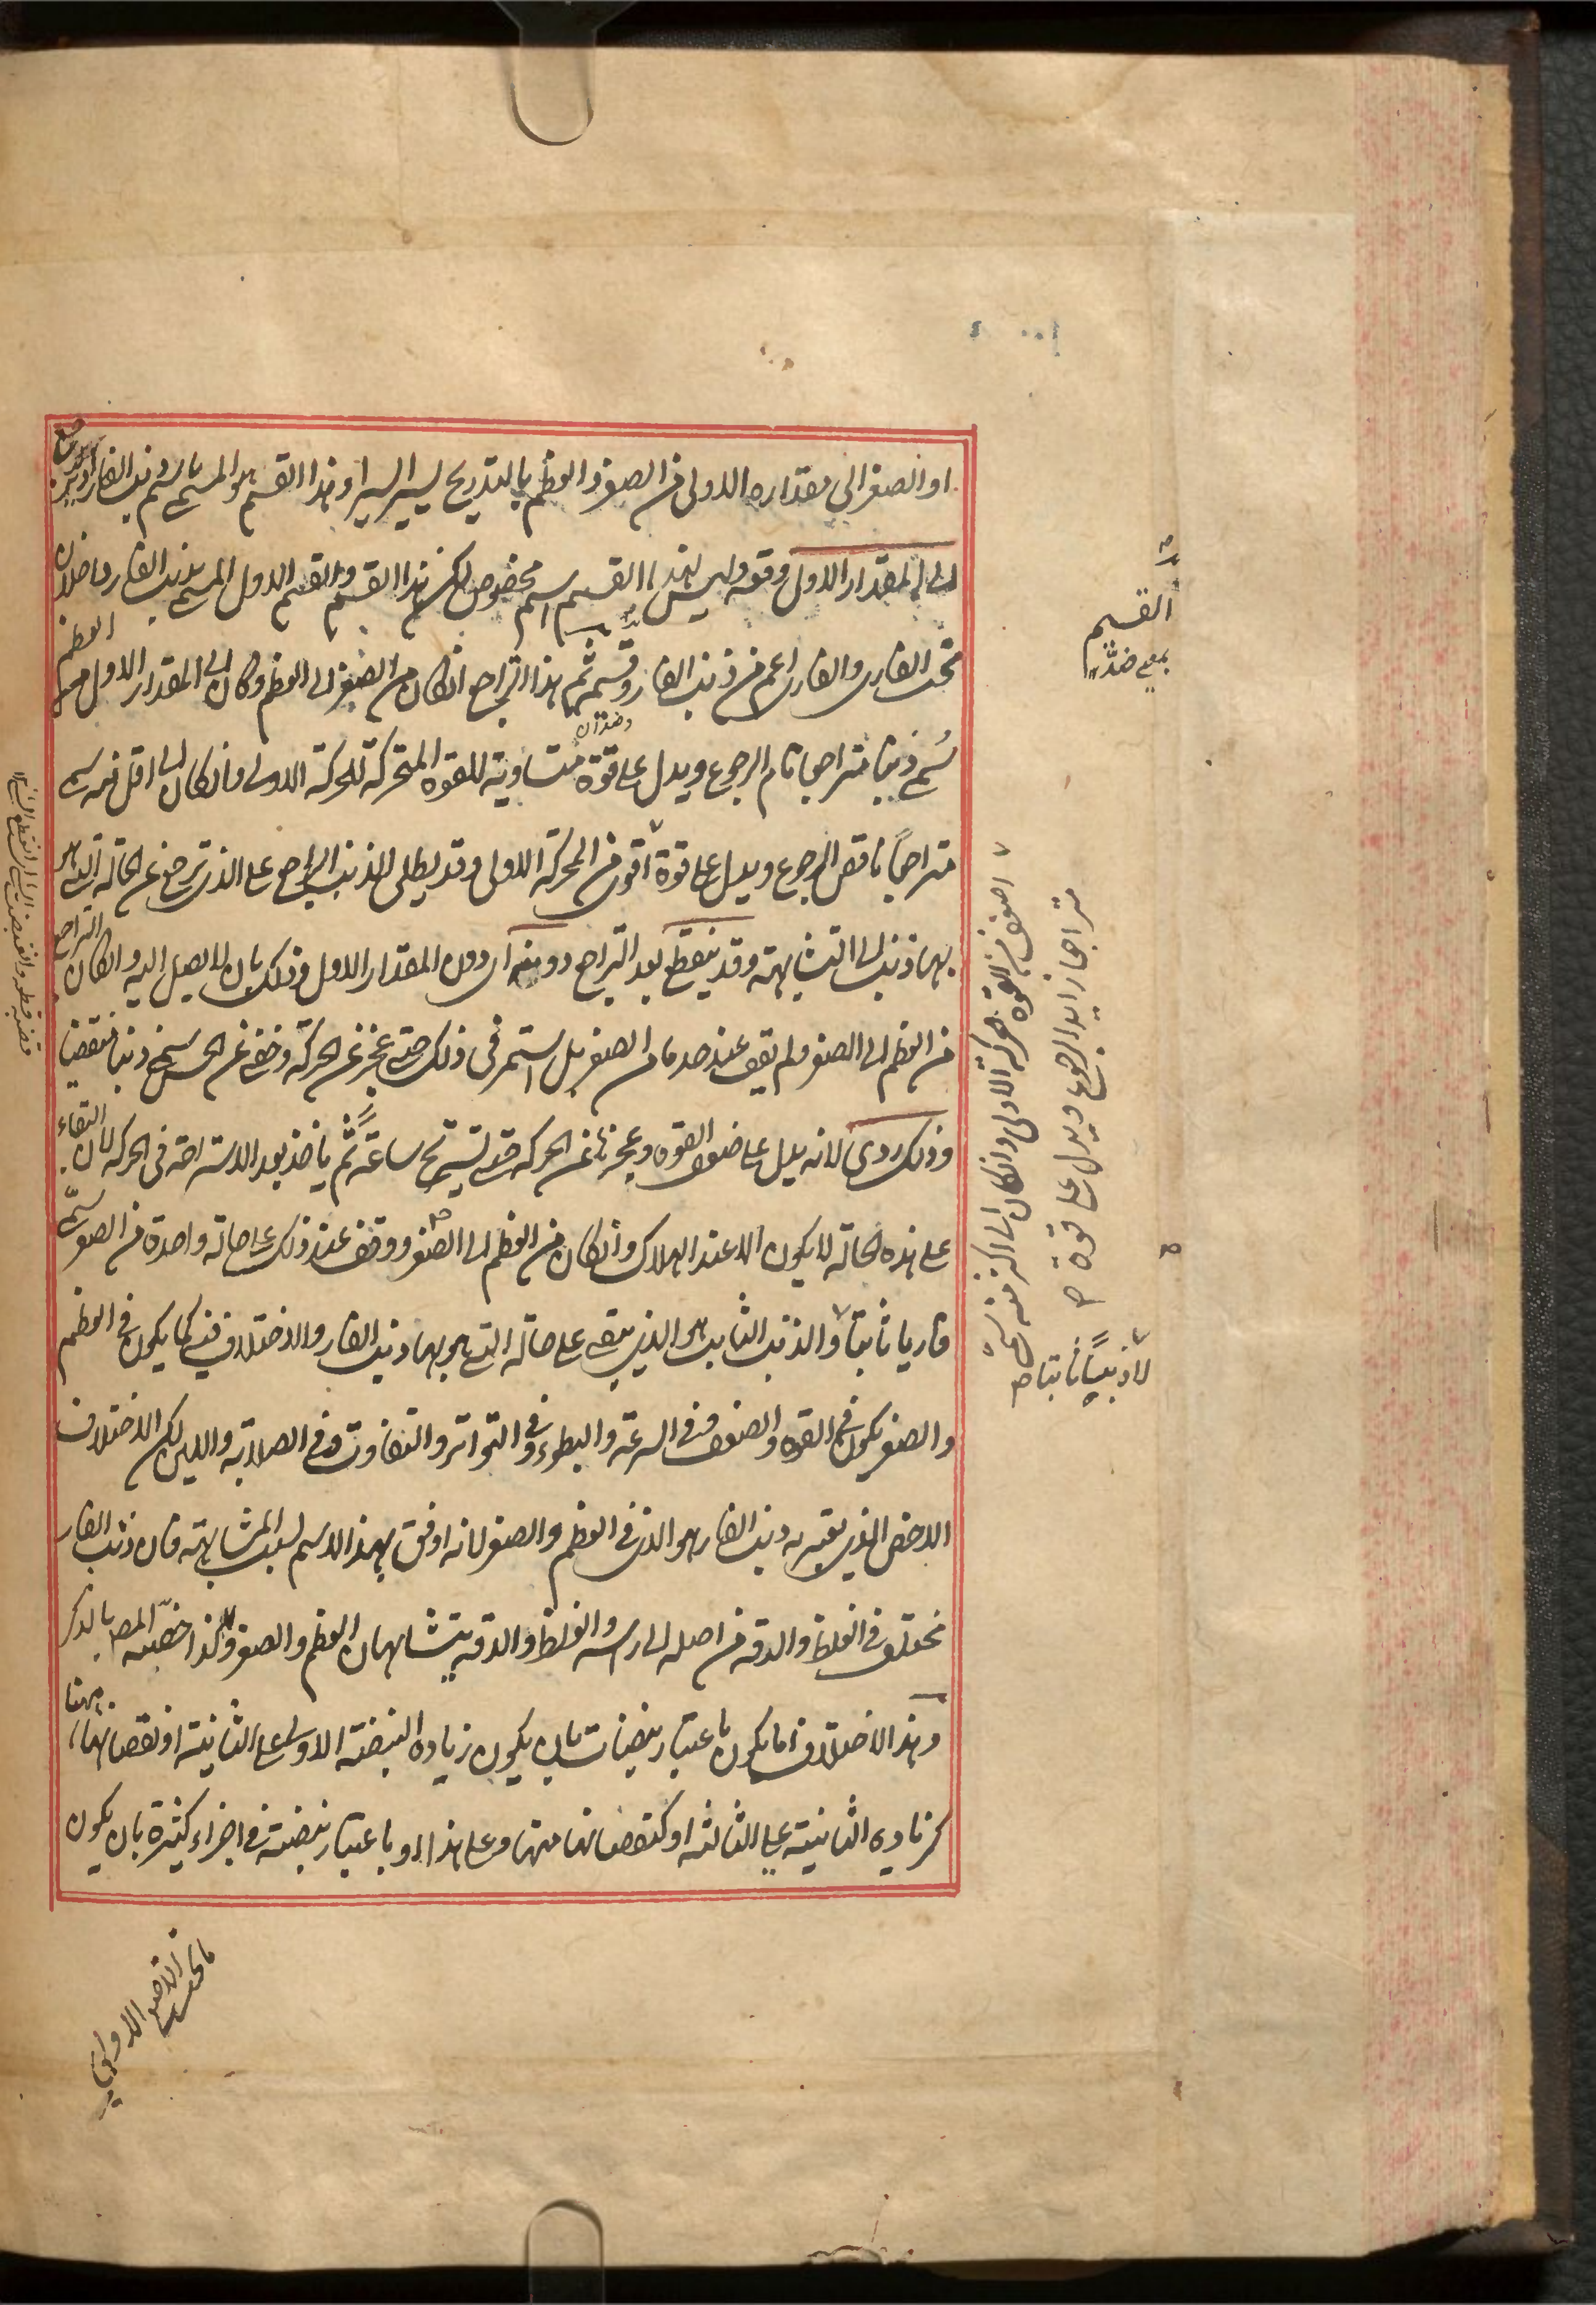 او الصغر الى مقداره الاولى من الصغر والعظم بالتدريج يسيرا يسيرا وهذا القسم هو المسمى باسم ذنب الفار
الى المقدار الاول وقعه وليس لهذا القسم اسم مخصوص لكن هذا القسم والقسم الاول المسمى بذنب الفار داخلان
تحت الفارى والفارى اعم من ذنب الفار وقسم ثم هذا التراجع انكان من الصغر الى العظم وكان الى المقدار الاول من العظم
سُمى ذنبا متراجعا تام الرجوع ويدل على قوة متساوية للقوة المتحركة للحركة الاولى وانكان الى اقل منه سمى
متراجعاً ناقص الرجوع ويدل على قوة اقوى من المحركة الاولى وقد يطلق الذنب الراجع على الذى ترجع عن الحالة التى هو
بها ذنب الى التشابهة وقد ينقطع بعد التراجع دونه اى دون المقدار الاول وذلك بان لا يصل اليه وانكان التراجع
من العظم الى الصغر ولم يقف عند حد ما من الصغر بل استمر فى ذلك حتى عجز عن الحركة وخفى عن الحس سمى ذنبا منقضيا
وذلك ردى لانه يدل على ضعف القوة وعجزها عن الحركة حتى تستريح ساعة ثم ياخذ بعد الاستراحة فى الحركة لان البقاء
على هذه الحالة لا يكون الا عند الهلاك وانكان من العظم الى الصغر ووقف عند ذلك على حالة واحدة من الصغر سمى
فاريا ثابتا والذنب الثابت هو الذى يبقى على حالة التى هو بها ذنب الفار والاختلاف فيه كما يكون فى العظم
والصغر يكون فى القوة والضعف وفى السرعة والبطوء وفى التواتر والتفاوت وفى الصلابة واللين لكن الاختلاف
الاخص الذى يعتبر به ذنب الفار هو الذى فى العظم والصغر لانه اوفق بهذا الاسم لسبب المشابهة فان ذنب الفار
مختلف فى الغلظ والدقة من اصله الى راسه والغلظ والدقة يتشابهان العظم والصغر ولذا خصه المص بالذكر
وهذا الاختلاف اما يكون باعتبار نبضات بان يكون زيادة النبضة الاولى على الثانية او نقصانها منها
كزيادة الثانية على الثالثة او كنقصانها منها وعلى هذا او باعتبار نبضة فى اجزاء كثيرة بان يكون
القسم
بمعى ضدّ
وضدان
اضعف من القوة بحركة الاولى وانكان الى اكثر منه سمى
متراجعا زايد الرجوع ويدل على قوة
لا ذنبيا ثابتا
ما تحت الاصبع الاولى